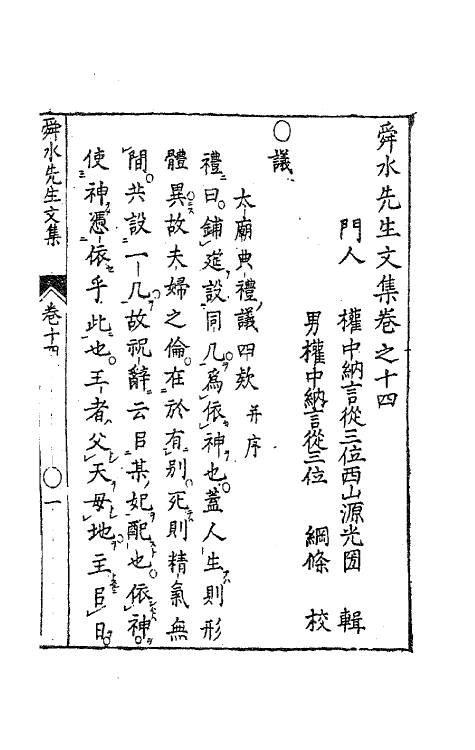 舜水先生文集卷之十四
門人 權中納言從三位西山源光圀 輯
男權中納言從三位 綱條 校
○議
太廟典禮議四款 并序
禮曰鋪筵設同几爲依神也蓋人生則形
體異故夫婦之倫在於有別死則精氣無
間共設一几故祝辭云以某妃配也依神
使神憑依乎此也王者父天母地主臣日
舜水先生文集 卷十四 ○一